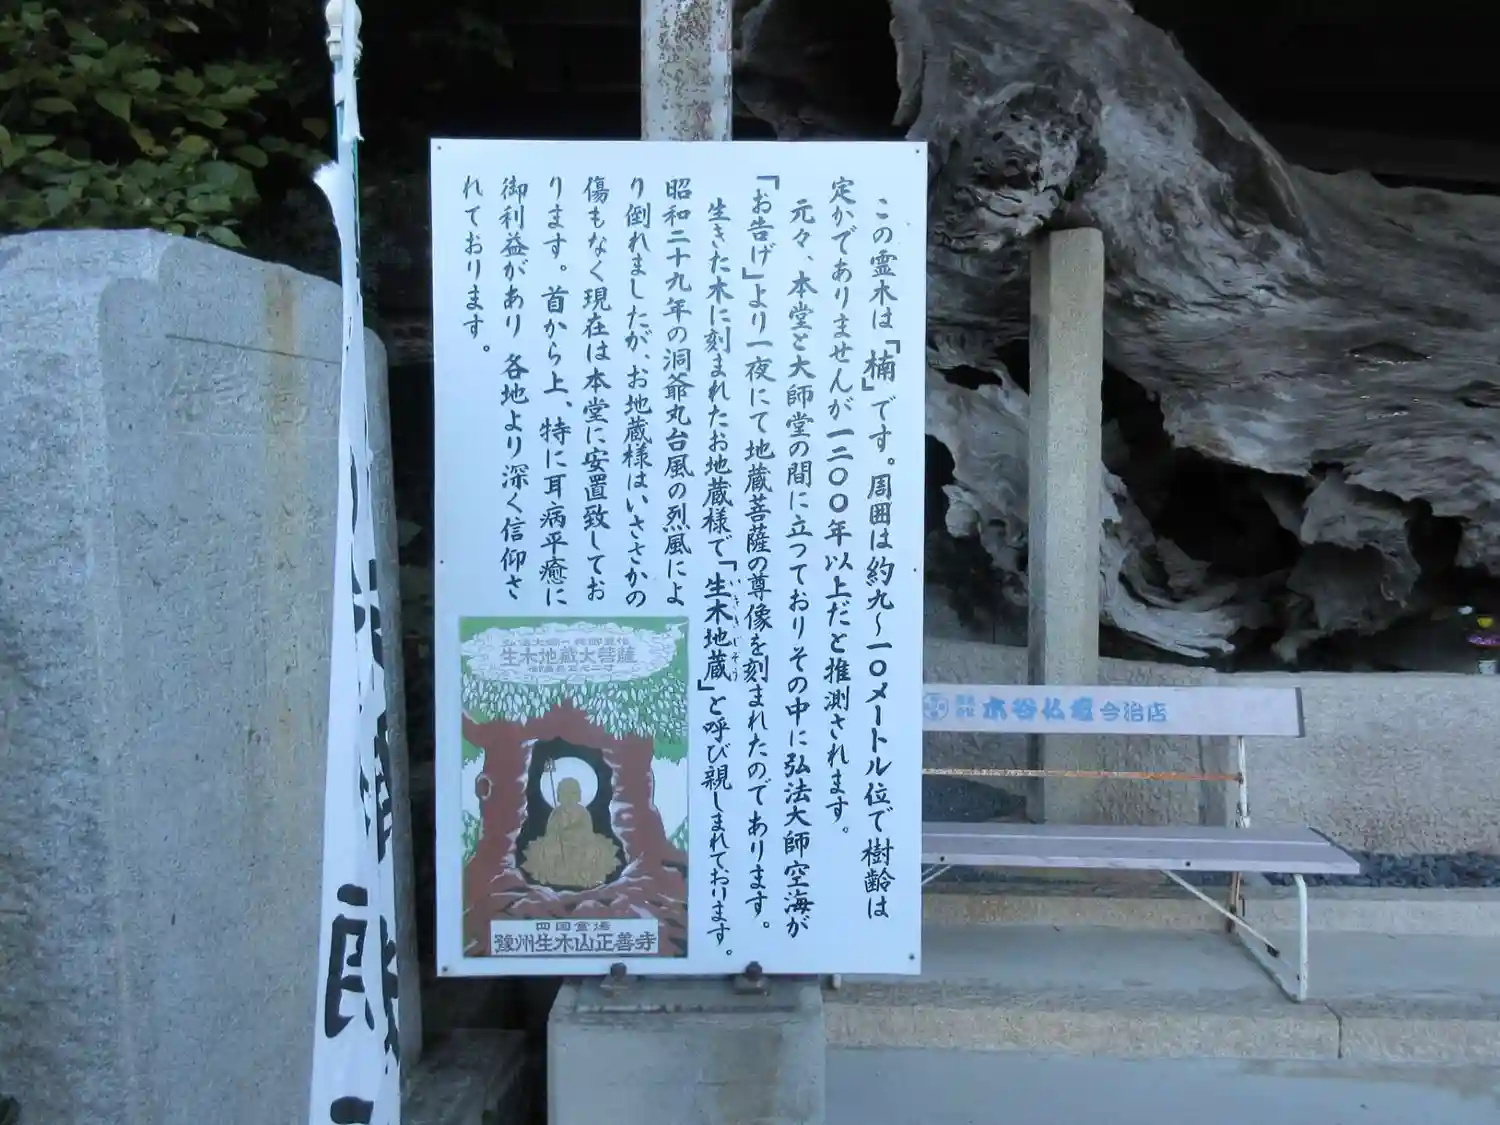 この霊木は「楠」です。周囲は約九～一〇メートル位で樹齢は
定かでありませんが一二〇〇年以上だと推測されます。
元々、本堂と大師堂の間に立つておりその中に弘法大師空海が
「お告げ」より一夜にて地蔵菩薩の尊像を刻まれたのであります。
生きた木に刻まれたお地蔵様で「生木地蔵」と呼び親しまれております。
いききじぞう
昭和二十九年の洞爺丸台風の烈風によ
り倒れましたが、お地蔵様はいささかの
傷もなく現在は本堂に安置致してお
ります。首から上、特に耳病平癒に
御利益があり 各地より深く信仰さ
れております。
生木地蔵大菩薩
四国霊場
豫州生木山正善寺
木谷仏壇 今治店